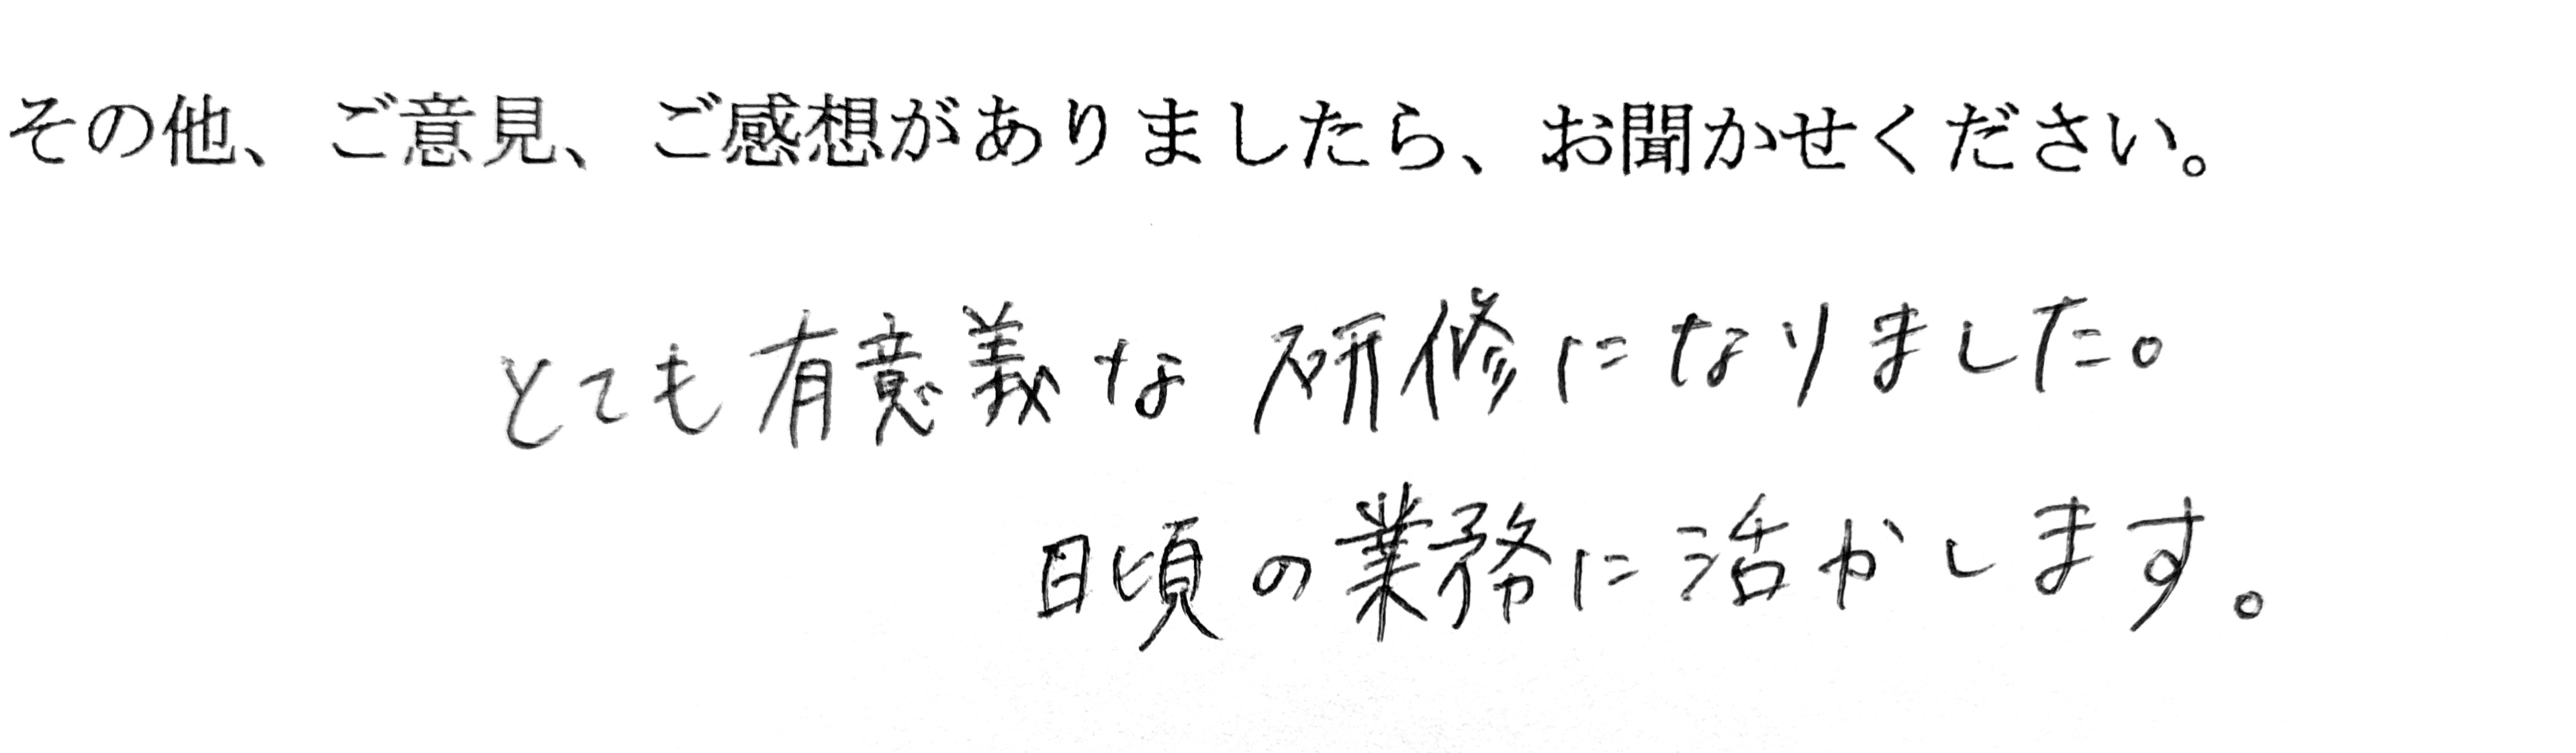 その他、ご意見、ご感想がありましたら、お聞かせください。
とても有意義な研修になりました。
日頃の業務に活かします。